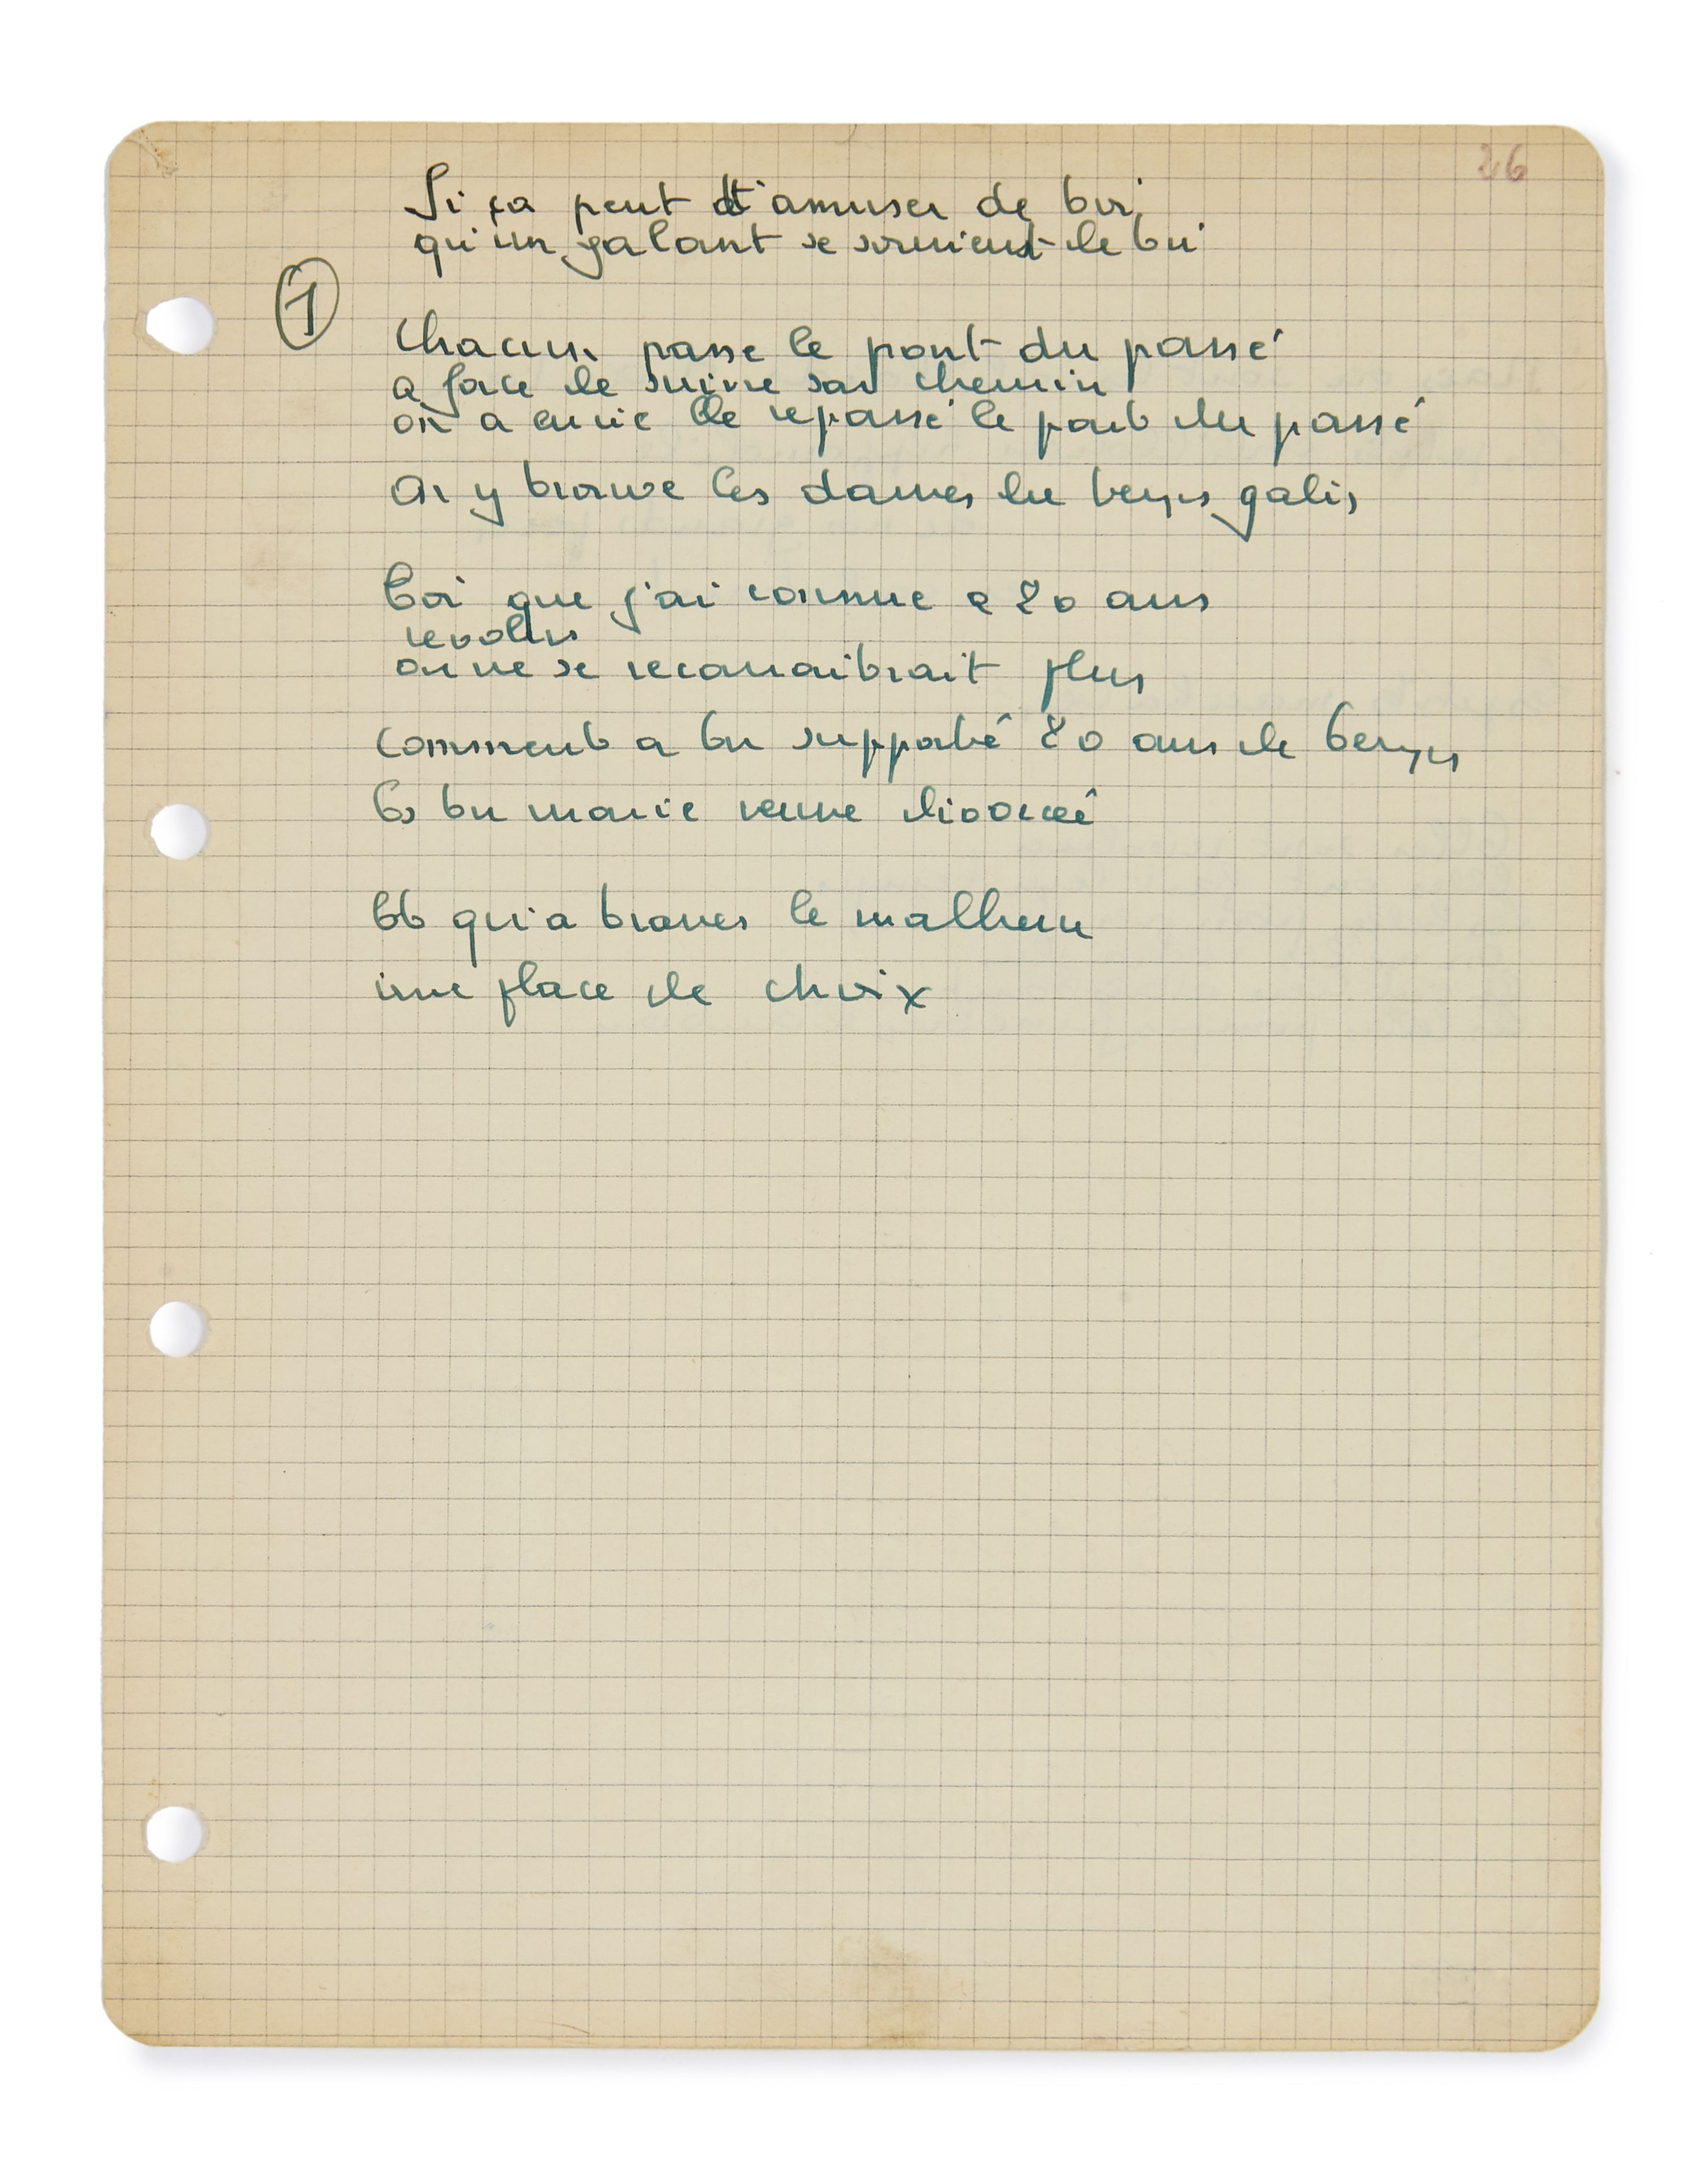 26
Si ça peut t'amuser de toi
qu'un galant se souvient de toi
①
Chacun passe le pont du passé
a face de suivre son chemin
on a envie de repassé le pont du passé
On y trouve les dames du temps jadis
Toi que j'ai connue a 20 ans
revolus
on ne se reconnaitrait plus
comment a tu supporté 20 ans de temps
Es tu marie veuve divorcé
toi qui a braver le malheur
une place de choix